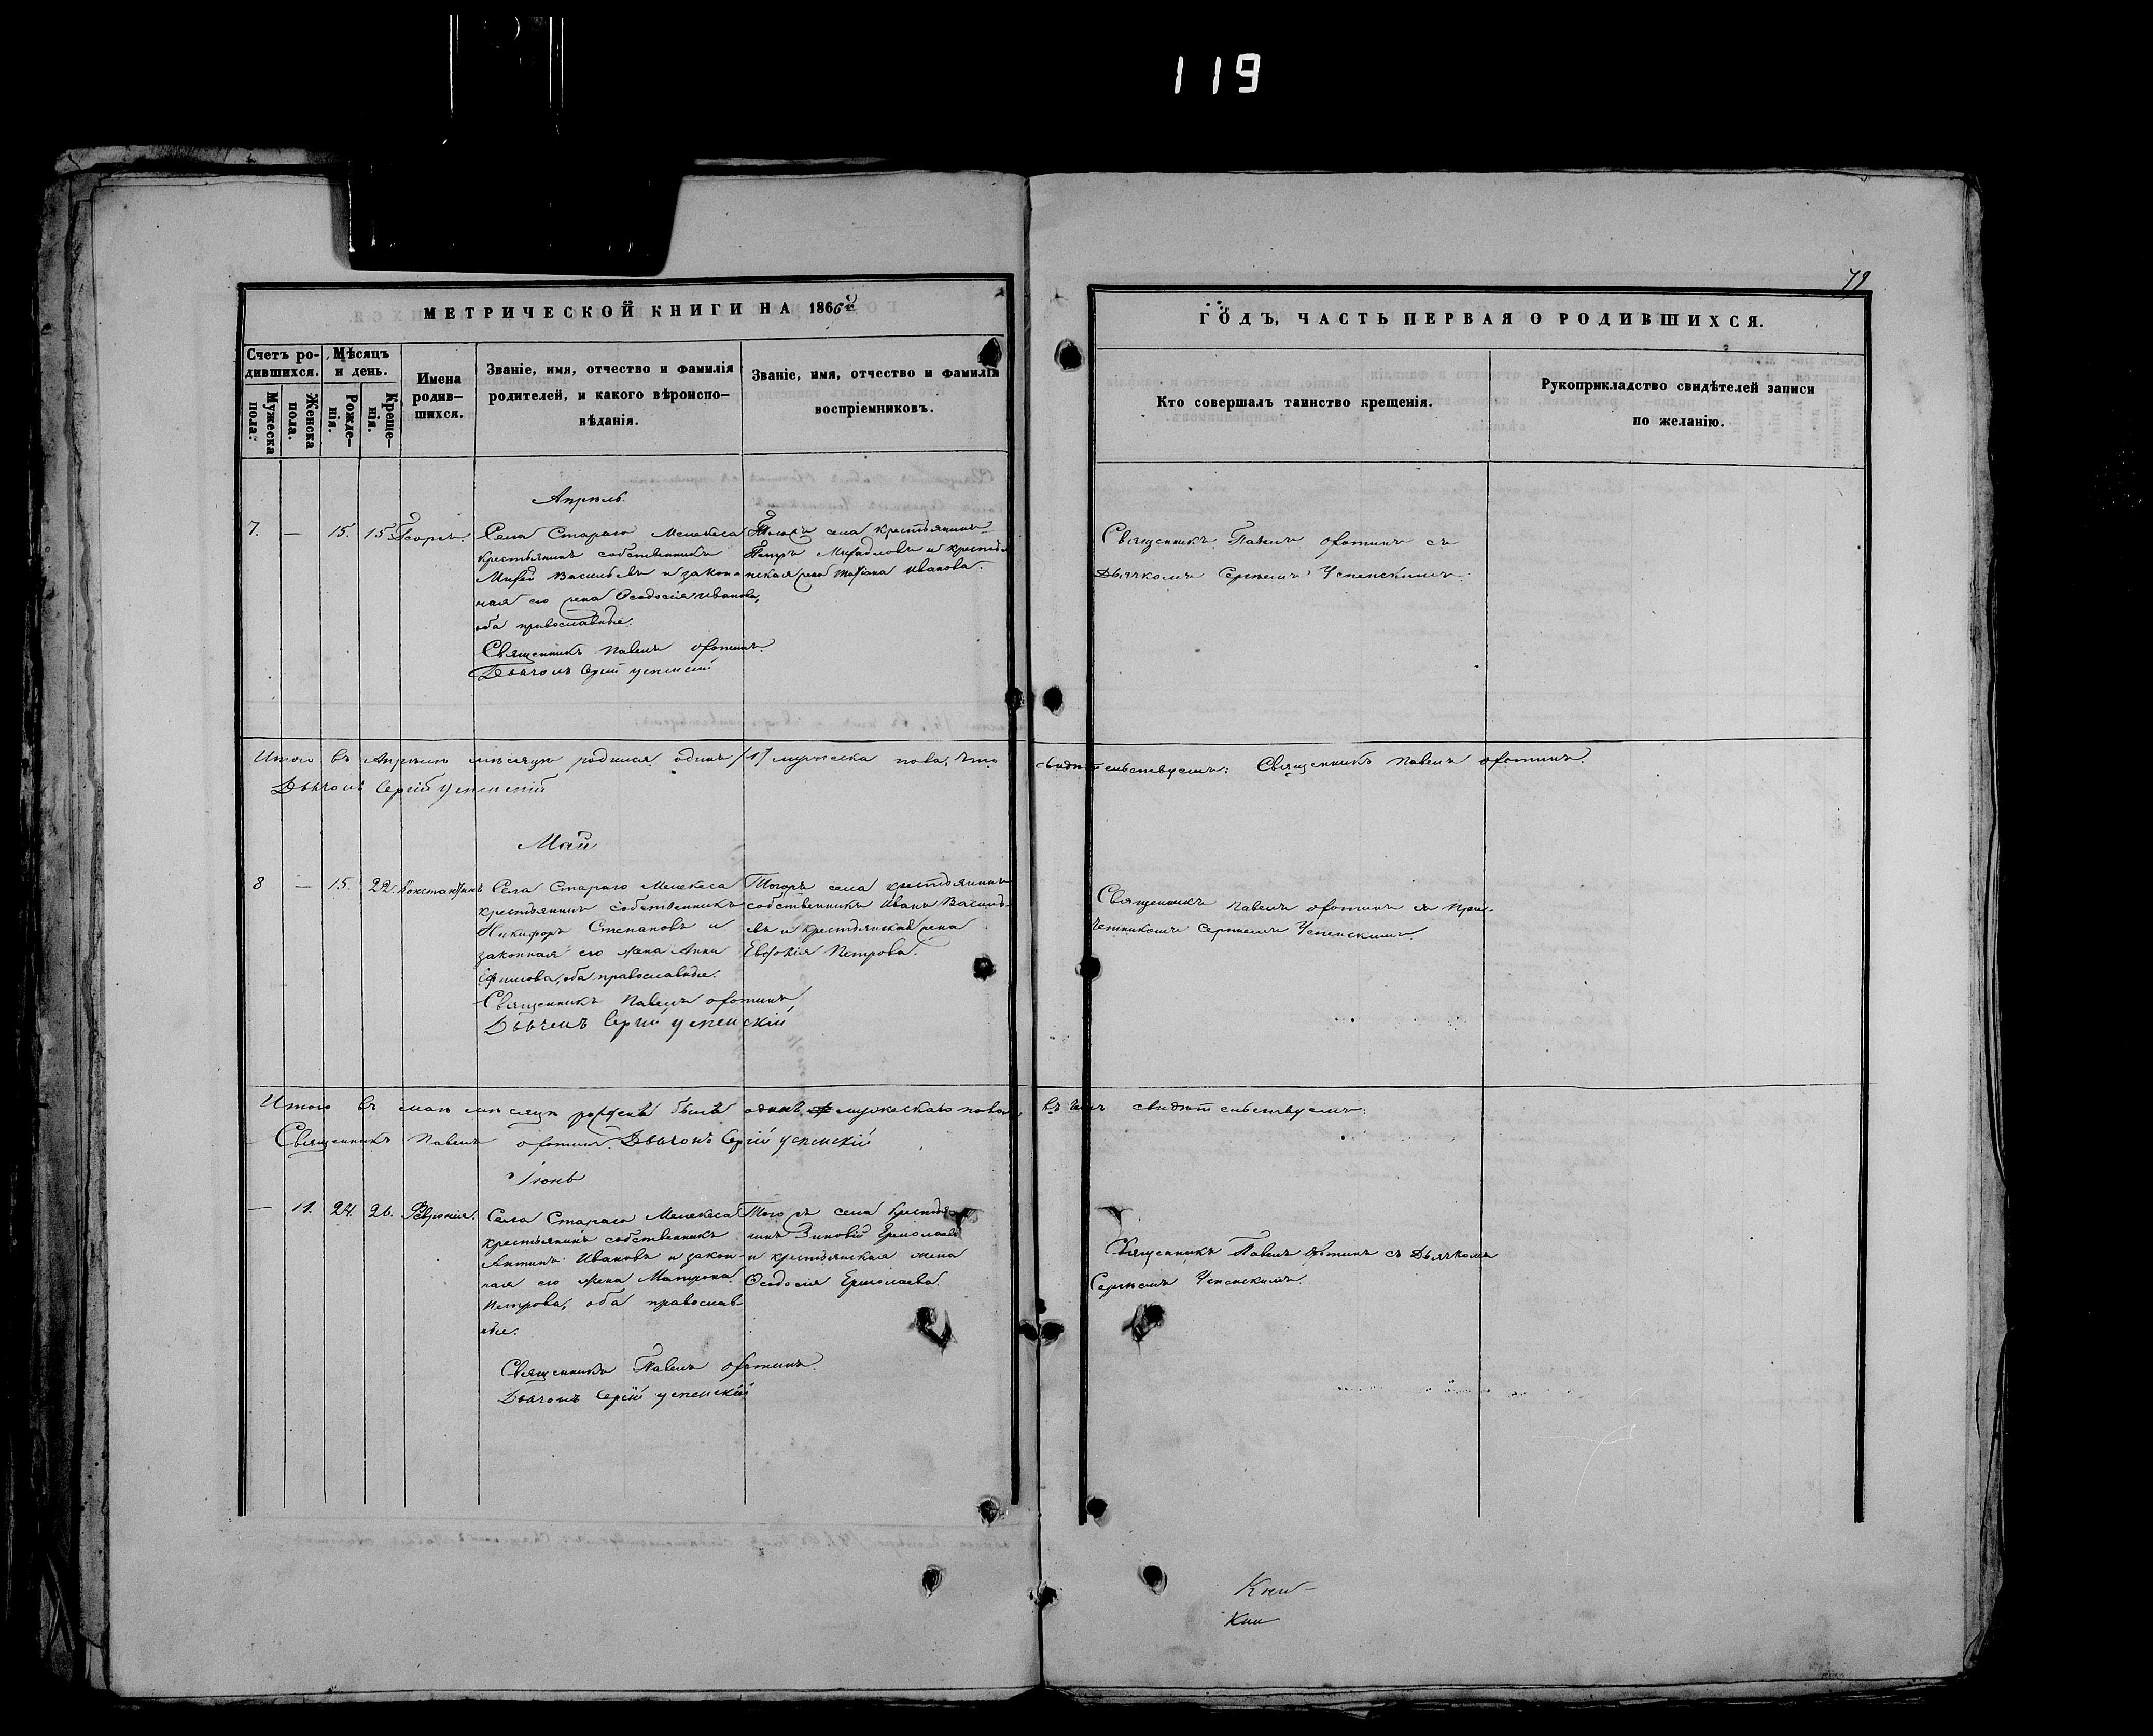 119
79
МЕТРИЧЕСКОЙ КНИГИ НА 1866й
ГОДЪ, ЧАСТЬ ПЕРВАЯ О РОДИВШИХСЯ.
Счетъ ро-
дившихся.
Мужеска
пола.
Женска
пола.
Мѣсяцъ
и день.
Рожде-
нія.
Креще-
нія.
Имена
родив-
шихся.
Званіе, имя, отчество и фамилія
родителей, и какого вѣроиспо-
вѣданія.
Званіе, имя, отчество и фамилія
воспріемниковъ.
Кто совершалъ таинство крещенія.
Рукоприкладство свидѣтелей записи
по желанію.
Апрѣль.
7. — 15. 15 Георгій.
Села Стараго Мелекеса
крестьянинъ собственникъ
Васильевъ и закон-
ная его жена Ѳеодосія Иванова,
оба православные.
Священникъ Павелъ
Дьячокъ Сергій Успенскій
села крестьянинъ
Петръ Михайловъ и крестья-
нская жена Татіана Иванова.
Священникъ Павелъ съ
Дьячкомъ Сергіемъ Успенскимъ.
Итого въ Апрѣлѣ мѣсяцѣ родился одинъ /1/ мужеска пола, что свидѣтельствуемъ: Священникъ Павелъ
Дьячокъ Сергій Успенскій
Май
8 — 15. 22. Константинъ
Села Стараго Мелекеса
крестьянинъ собственникъ
Никифоръ Степановъ и
законная его жена Анна
Ефимова, оба православные.
Священникъ Павелъ
Дьячекъ Сергій Успенскій
Тогожъ села крестьянинъ
собственникъ Иванъ Василь-
евъ и крестьянская жена
Евдокія Петрова.
Священникъ Павелъ съ При-
четникомъ Сергіемъ Успенскимъ.
Итого въ маѣ мѣсяцѣ рожденъ былъ одинъ мужескаго пола, въ чемъ свидѣтельствуемъ:
Священникъ Павелъ Дьячокъ Сергій Успенскій
Іюнь
— 11. 24. 26. Февронія.
Села Стараго Мелекеса
крестьянинъ собственникъ
Антипъ Ивановъ и закон-
ная его жена Матрона
Петрова, оба православ-
ные.
Священникъ Павелъ
Дьячокъ Сергій Успенскій
Того жъ села крестья-
нинъ Зиновій Ермолаевъ
и крестьянская жена
Ѳеодосія Ермолаева.
Священникъ Павелъ съ Дьячкомъ
Сергіемъ Успенскимъ.
Кни-
Кни